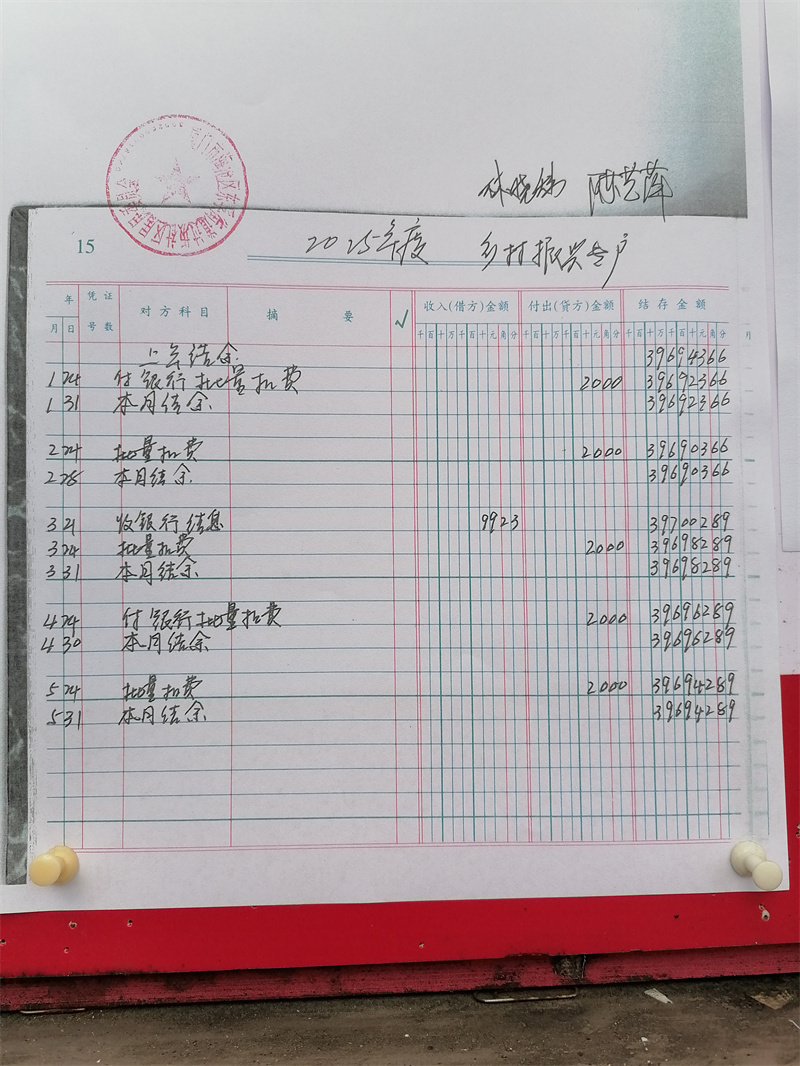 15
2025年度 乡村振兴专户
年 凭证 对方科目 摘要 √ 收入(借方)金额 付出(贷方)金额 结存金额
月 日 号数 千百十万千百十元角分 千百十万千百十元角分 千百十万千百十元角分
上年结余 39694366
1 24 付银行批量扣费 2000 39692366
1 31 本月结余 39692366
2 24 批量扣费 2000 39690366
2 28 本月结余 39690366
3 21 收银行结息 9923 39700289
3 24 批量扣费 2000 39698289
3 31 本月结余 39698289
4 24 付银行批量扣费 2000 39696289
4 30 本月结余 39696289
5 24 批量扣费 2000 39694289
5 31 本月结余 39694289